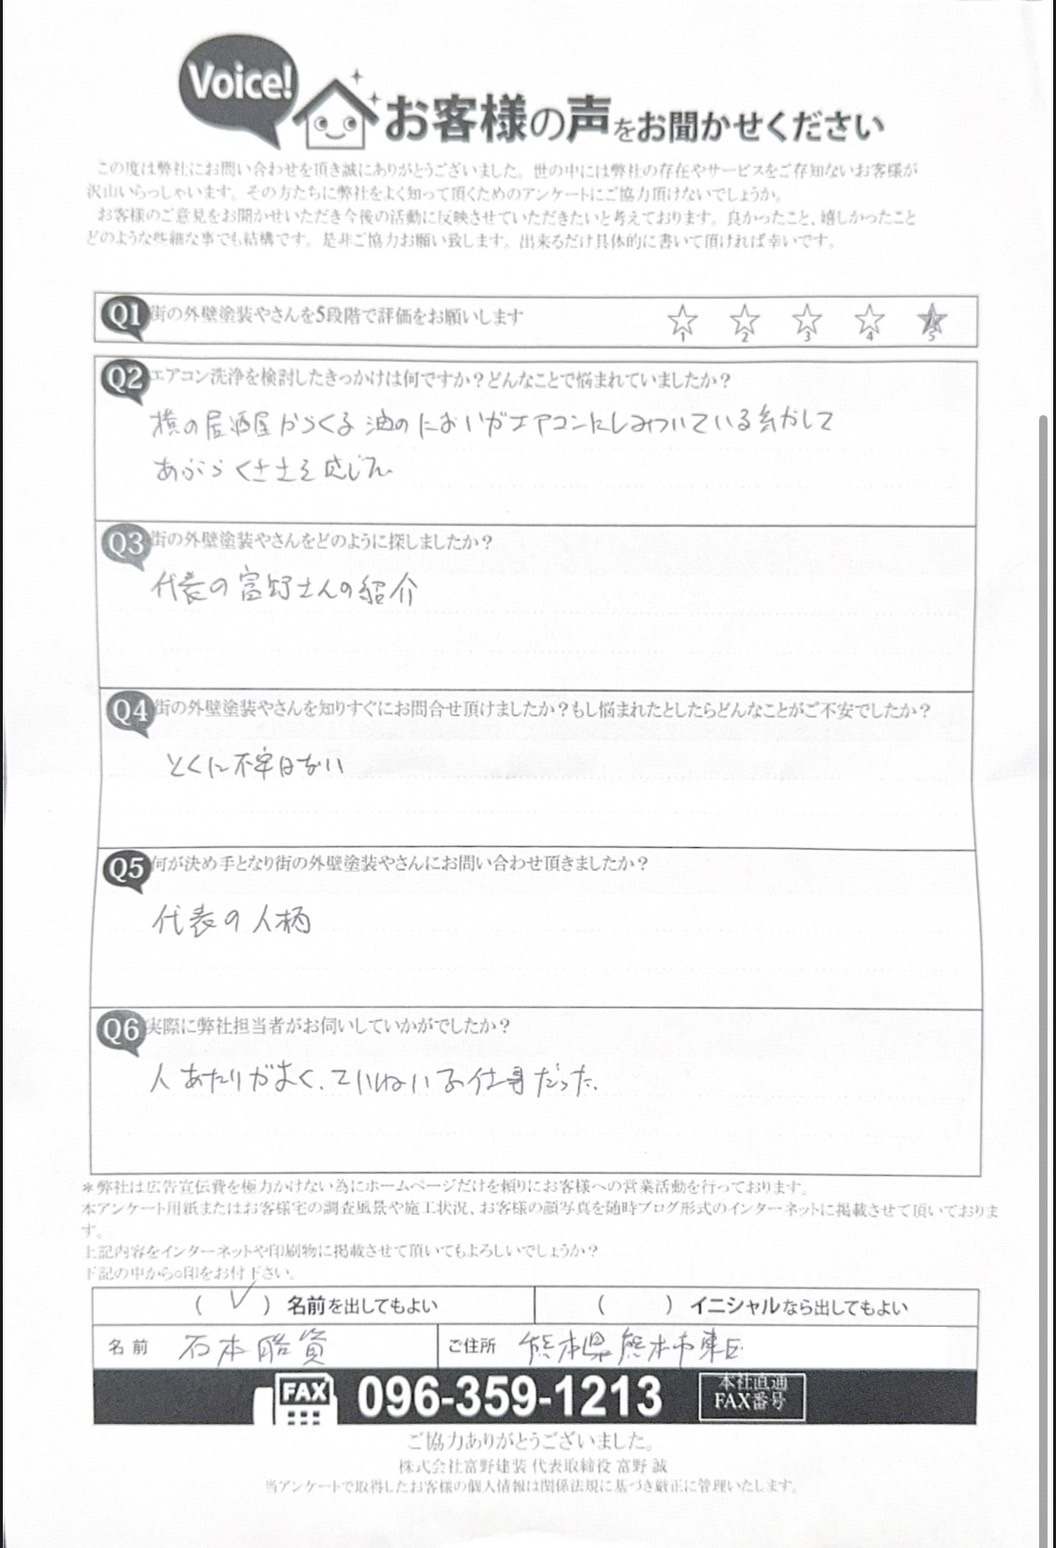 Voice!
お客様の声をお聞かせください
この度は弊社にお問い合わせを頂き誠にありがとうございました。世の中には弊社の存在やサービスをご存知ないお客様が
沢山いらっしゃいます。その方たちに弊社をよく知って頂くためのアンケートにご協力頂けないでしょうか。
お客様のご意見をお聞かせいただき今後の活動に反映させていただきたいと考えております。良かったこと、嬉しかったこと
どのような些細な事でも結構です。是非ご協力お願い致します。出来るだけ具体的に書いて頂ければ幸いです。
Q1 街の外壁塗装やさんを5段階で評価をお願いします
1 2 3 4 5
Q2 エアコン洗浄を検討したきっかけは何ですか？どんなことで悩まれていましたか？
横の居酒屋からくる油のにおいがエアコンにしみついている気がして
あぶらくささを感じた
Q3 街の外壁塗装やさんをどのように探しましたか？
代表の富野さんの紹介
Q4 街の外壁塗装やさんを知りすぐにお問合せ頂けましたか？もし悩まれたとしたらどんなことがご不安でしたか？
とくに不安はない
Q5 何が決め手となり街の外壁塗装やさんにお問い合わせ頂きましたか？
代表の人柄
Q6 実際に弊社担当者がお伺いしていかがでしたか？
人あたりがよく、ていねいな仕事だった。
＊弊社は広告宣伝費を極力かけない為にホームページだけを頼りにお客様への営業活動を行っております。
本アンケート用紙またはお客様宅の調査風景や施工状況、お客様の顔写真を随時ブログ形式のインターネットに掲載させて頂いておりま
す。
上記内容をインターネットや印刷物に掲載させて頂いてもよろしいでしょうか？
下記の中から○印をお付下さい。
（ ✓ ）名前を出してもよい （ ）イニシャルなら出してもよい
名前 石本 資 ご住所 熊本県熊本市東区
FAX 096-359-1213 本社直通
FAX番号
ご協力ありがとうございました。
株式会社富野建装 代表取締役 富野 誠
当アンケートで取得したお客様の個人情報は関係法規に基づき厳正に管理いたします。